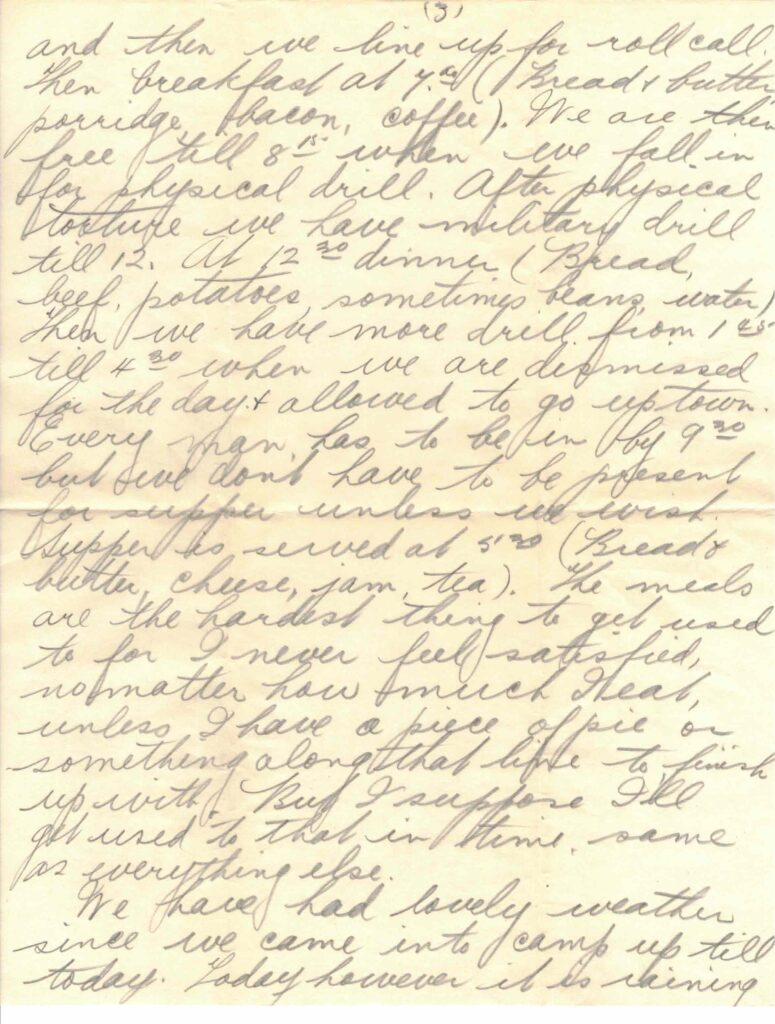 (3)
and then we line up for roll call.
Then breakfast at 7.00 (Bread & butter
porridge, bacon, coffee). We are then
free till 8 15 when we fall in
for physical drill. After physical
torture we have military drill
till 12. At 12 30 dinner (Bread,
beef, potatoes, sometimes beans, water)
Then we have more drill from 1 45
till 4 30 when we are dismissed
for the day & allowed to go uptown.
Every man has to be in by 9 30
but we dont have to be present
for supper unless we wish.
Supper is served at 5 30 (Bread &
butter, cheese, jam, tea). The meals
are the hardest thing to get used
to for I never feel satisfied,
no matter how much I eat,
unless I have a piece of pie or
something along that line to finish
up with. But I suppose I'll
get used to that in time, same
as everything else.
We have had lovely weather
since we came into camp up till
today. Today however it is raining